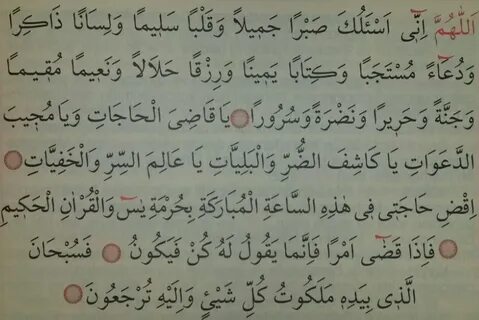 اَللّٰهُمَّ اِنّٖى اَسْئَلُكَ صَبْرًا جَمٖيلًا وَقَلْبًا سَلٖيمًا وَلِسَانًا ذَاكِرًا
وَدُعَٓاءً مُسْتَجَبًا وَكِتَابًا يَمٖينًا وَرِزْقًا حَلَالًا وَنَعٖيمًا مُقٖيمًا
وَجَنَّةً وَحَرٖيرًا وَنَضْرَةً وَسُرُورًا يَا قَاضِىَ الْحَاجَاتِ وَيَا مُجٖيبَ
الدَّعَوَاتِ يَا كَاشِفَ الضُّرِّ وَالْبَلِيَّاتِ يَا عَالِمَ السِّرِّ وَالْخَفِيَّاتِ
اِقْضِ حَاجَتٖى فٖى هٰذِهِ السَّاعَةِ الْمُبَارَكَةِ بِحُرْمَةِ يٰسٓ وَالْقُرْاٰنِ الْحَكٖيمِ
فَاِذَا قَضٰٓى اَمْرًا فَاِنَّمَا يَقُولُ لَهُ كُنْ فَيَكُونُ فَسُبْحَانَ
الَّذٖى بِيَدِهٖ مَلَكُوتُ كُلِّ شَيْئٍ وَاِلَيْهِ تُرْجَعُونَ